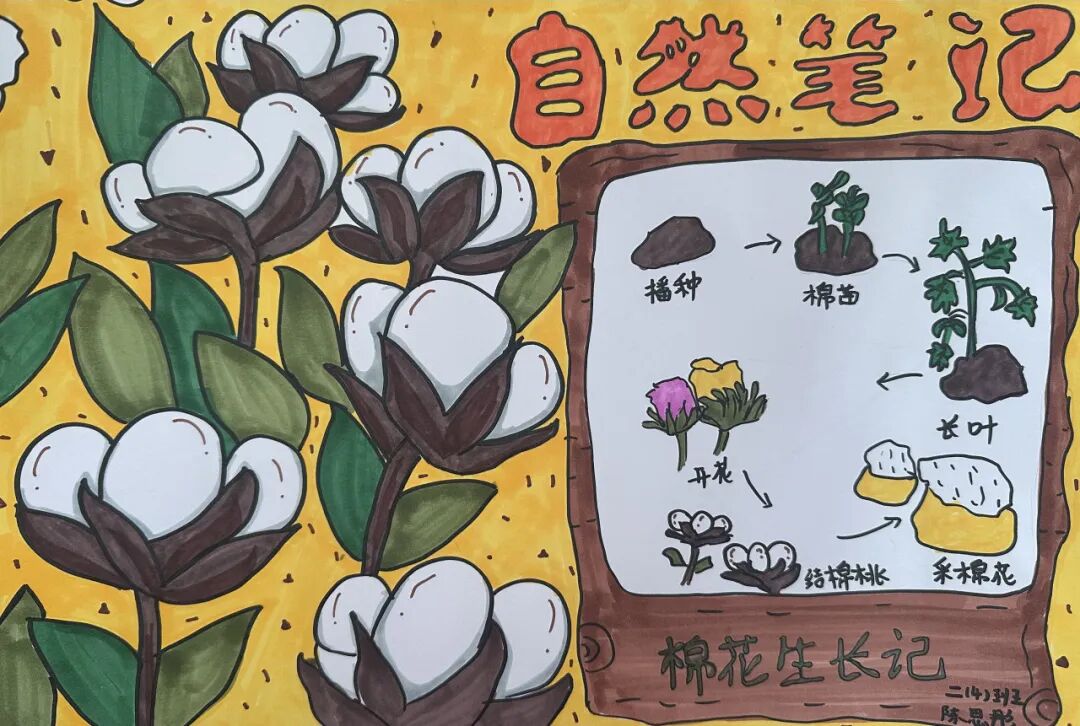 自然笔记
播种
棉苗
长叶
开花
结棉桃
采棉花
棉花生长记
二(4)班
陈思彤